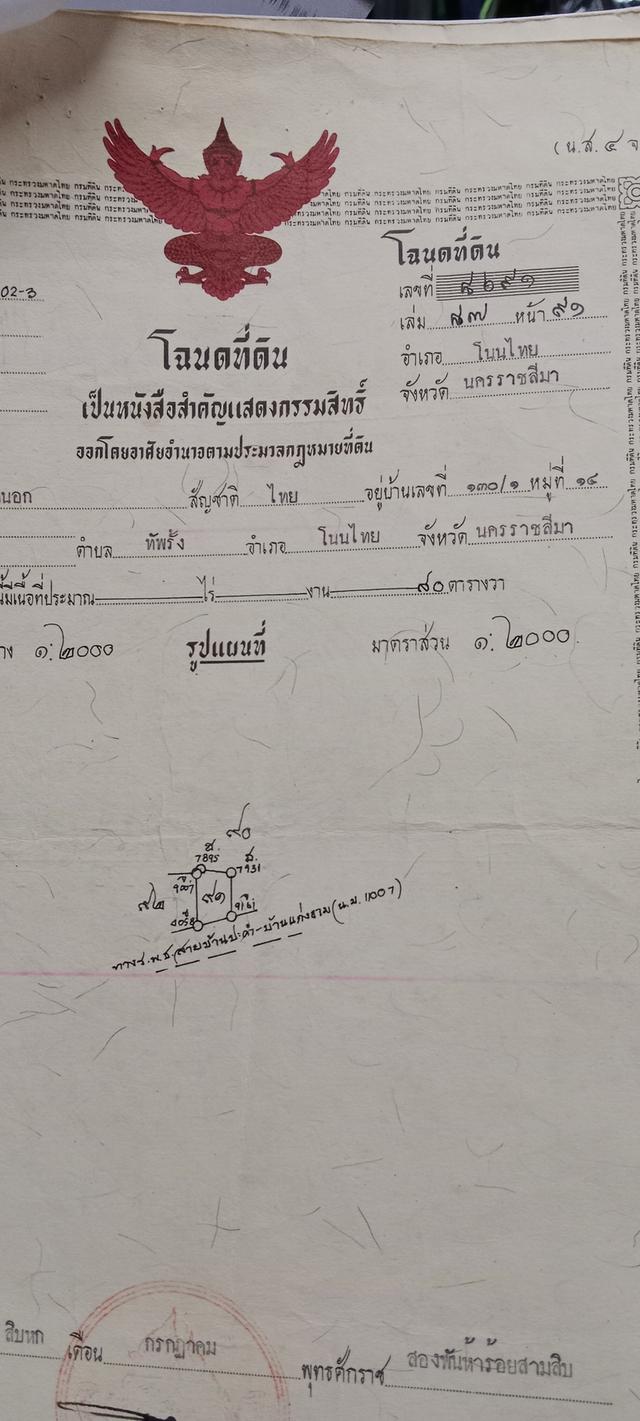 (น.ส. ๔ จ
กระทรวงมหาดไทย กรมที่ดิน กระทรวงมหาดไทย กรมที่ดิน กระทรวงมหาดไทย กรมที่ดิน
โฉนดที่ดิน
เลขที่ ๘๖๙๑
เล่ม ๘๗ หน้า ๙๑
อำเภอ โนนไทย
จังหวัด นครราชสีมา
02-3
โฉนดที่ดิน
เป็นหนังสือสำคัญแสดงกรรมสิทธิ์
ออกโดยอาศัยอำนาจตามประมวลกฎหมายที่ดิน
นอก สัญชาติ ไทย อยู่บ้านเลขที่ ๑๓๐/๑ หมู่ที่ ๑๔
ตำบล ทัพรั้ง อำเภอ โนนไทย จังหวัด นครราชสีมา
นี้มีเนื้อที่ประมาณ ไร่ งาน ๘๐ ตารางวา
๑:๒๐๐๐ รูปแผนที่ มาตราส่วน ๑:๒๐๐๐
๙๐
ส.
7895
ส.
7931
๙๒
๙๑
(น.ม. 11007)
สิบหก เดือน กรกฎาคม พุทธศักราช สองพันห้าร้อยสามสิบ